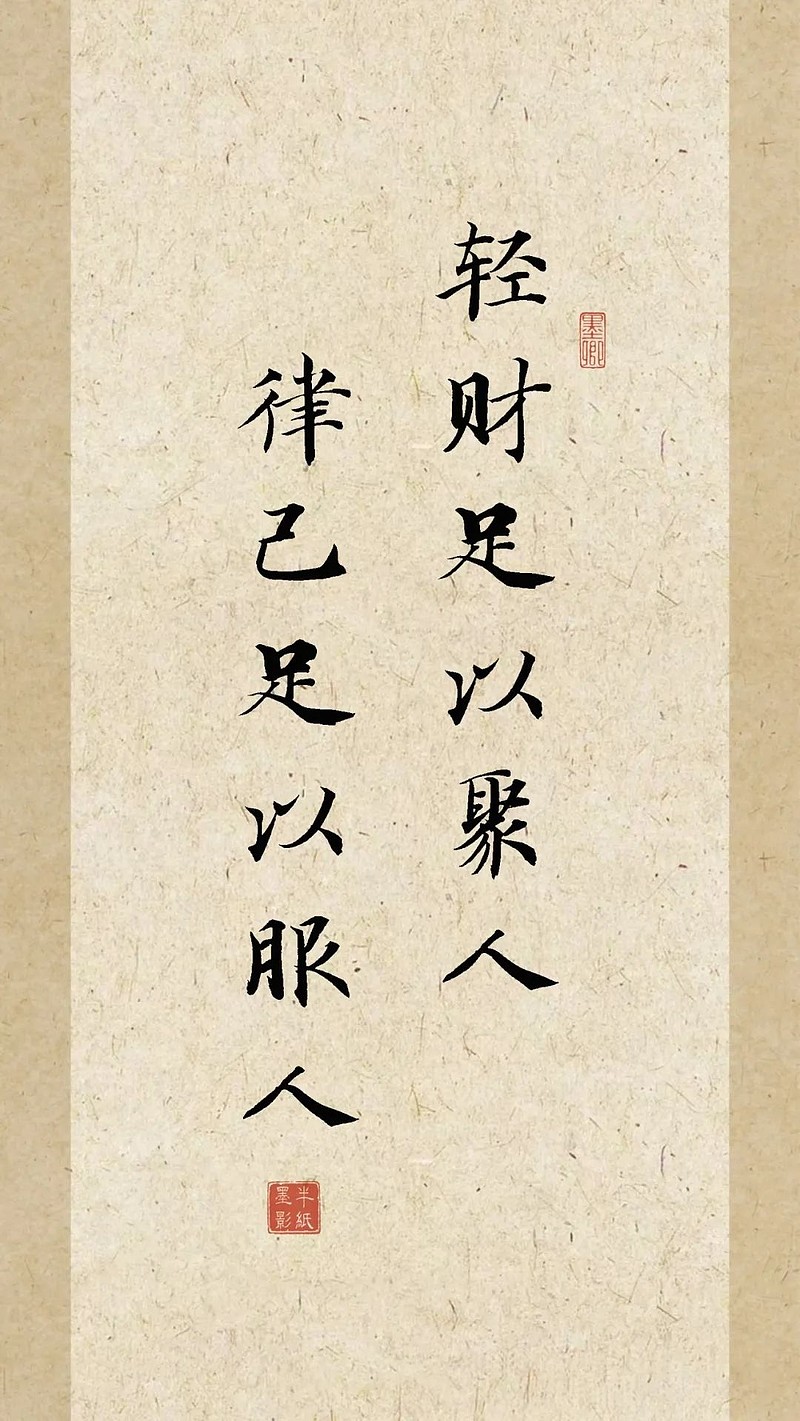 轻财足以聚人
律己足以服人
墨卿
半纸墨影